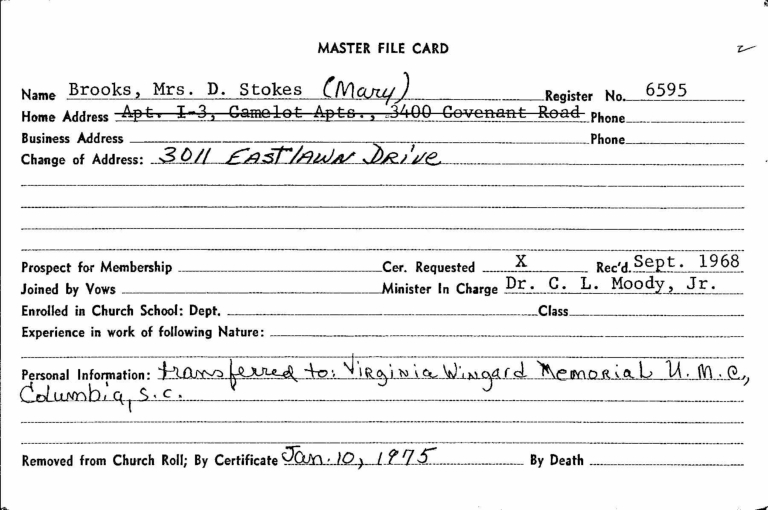 MASTER FILE CARD
Name Brooks, Mrs. D. Stokes (Mary) Register No. 6595
Home Address Apt. I-3, Camelot Apts., 3400 Covenant Road Phone
Business Address Phone
Change of Address: 3011 EASTLAWN DRIVE
Prospect for Membership Cer. Requested X Rec'd. Sept. 1968
Joined by Vows Minister In Charge Dr. C. L. Moody, Jr.
Enrolled in Church School: Dept. Class
Experience in work of following Nature:
Personal Information: transferred to: Virginia Wingard Memorial U.M.C.,
Columbia, S.C.
Removed from Church Roll; By Certificate Jan. 10, 1975 By Death